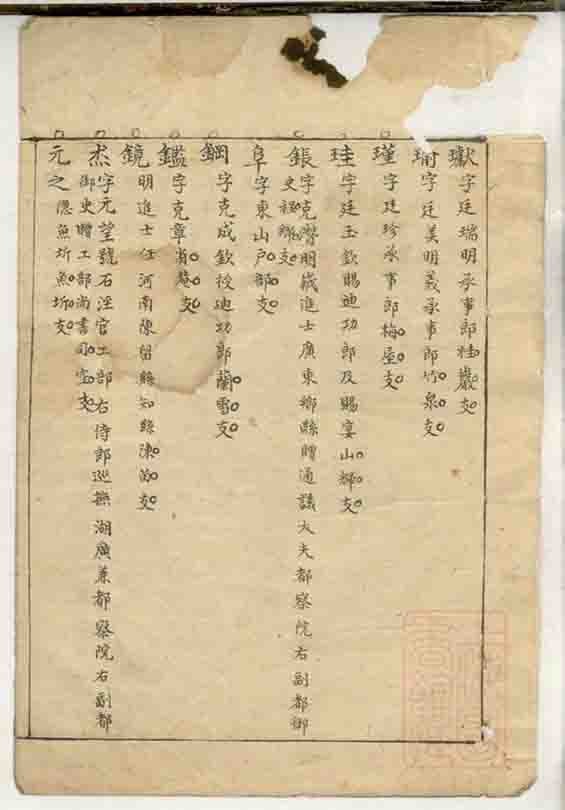 瓛字廷瑞明承事郎桂巖支
瑚字廷美明義承事郎竹泉支
瑾字廷珍承事郎梅屋支
珪字廷玉欽賜迪功郎及賜宴山輝支
鋹字克 明歲進士廣東 縣贈通議大夫都察院右副都御
史 支
阜字東山戶部支
鋼字克成欽授迪功郎蘭雪支
鑑字克章 菴支
鏡明進士任河南陳留縣知縣陳 支
杰字元望號石淫官工部右侍郎巡撫湖廣兼都察院右副都
御史贈工部尚書司空支
元之隱魚圻魚圻支